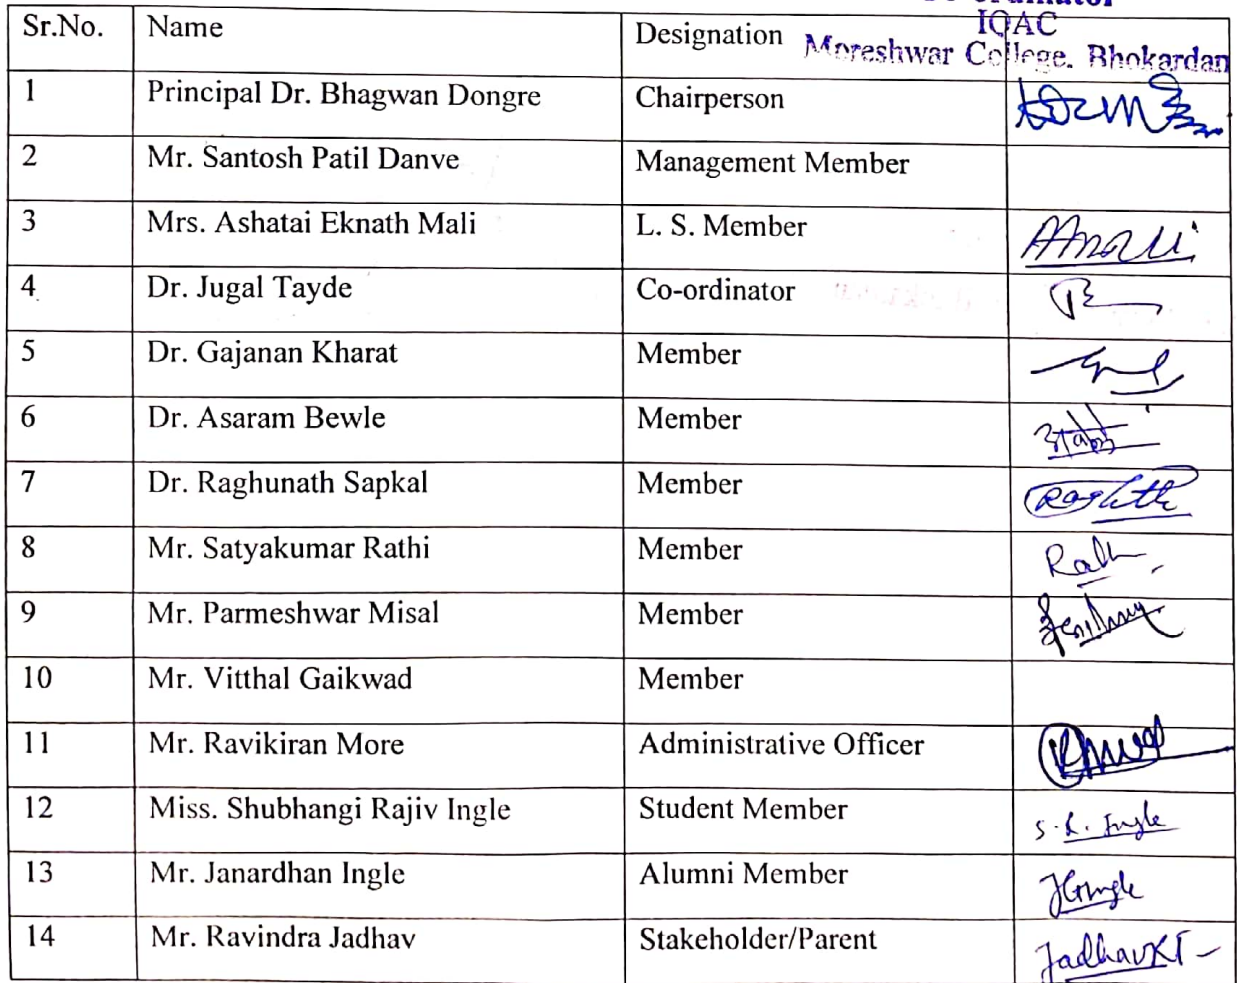 IQAC
Moreshwar College, Bhokardan
Sr.No. Name Designation
1 Principal Dr. Bhagwan Dongre Chairperson
2 Mr. Santosh Patil Danve Management Member
3 Mrs. Ashatai Eknath Mali L. S. Member
4 Dr. Jugal Tayde Co-ordinator
5 Dr. Gajanan Kharat Member
6 Dr. Asaram Bewle Member
7 Dr. Raghunath Sapkal Member
8 Mr. Satyakumar Rathi Member
9 Mr. Parmeshwar Misal Member
10 Mr. Vitthal Gaikwad Member
11 Mr. Ravikiran More Administrative Officer
12 Miss. Shubhangi Rajiv Ingle Student Member S. R. Ingle
13 Mr. Janardhan Ingle Alumni Member
14 Mr. Ravindra Jadhav Stakeholder/Parent